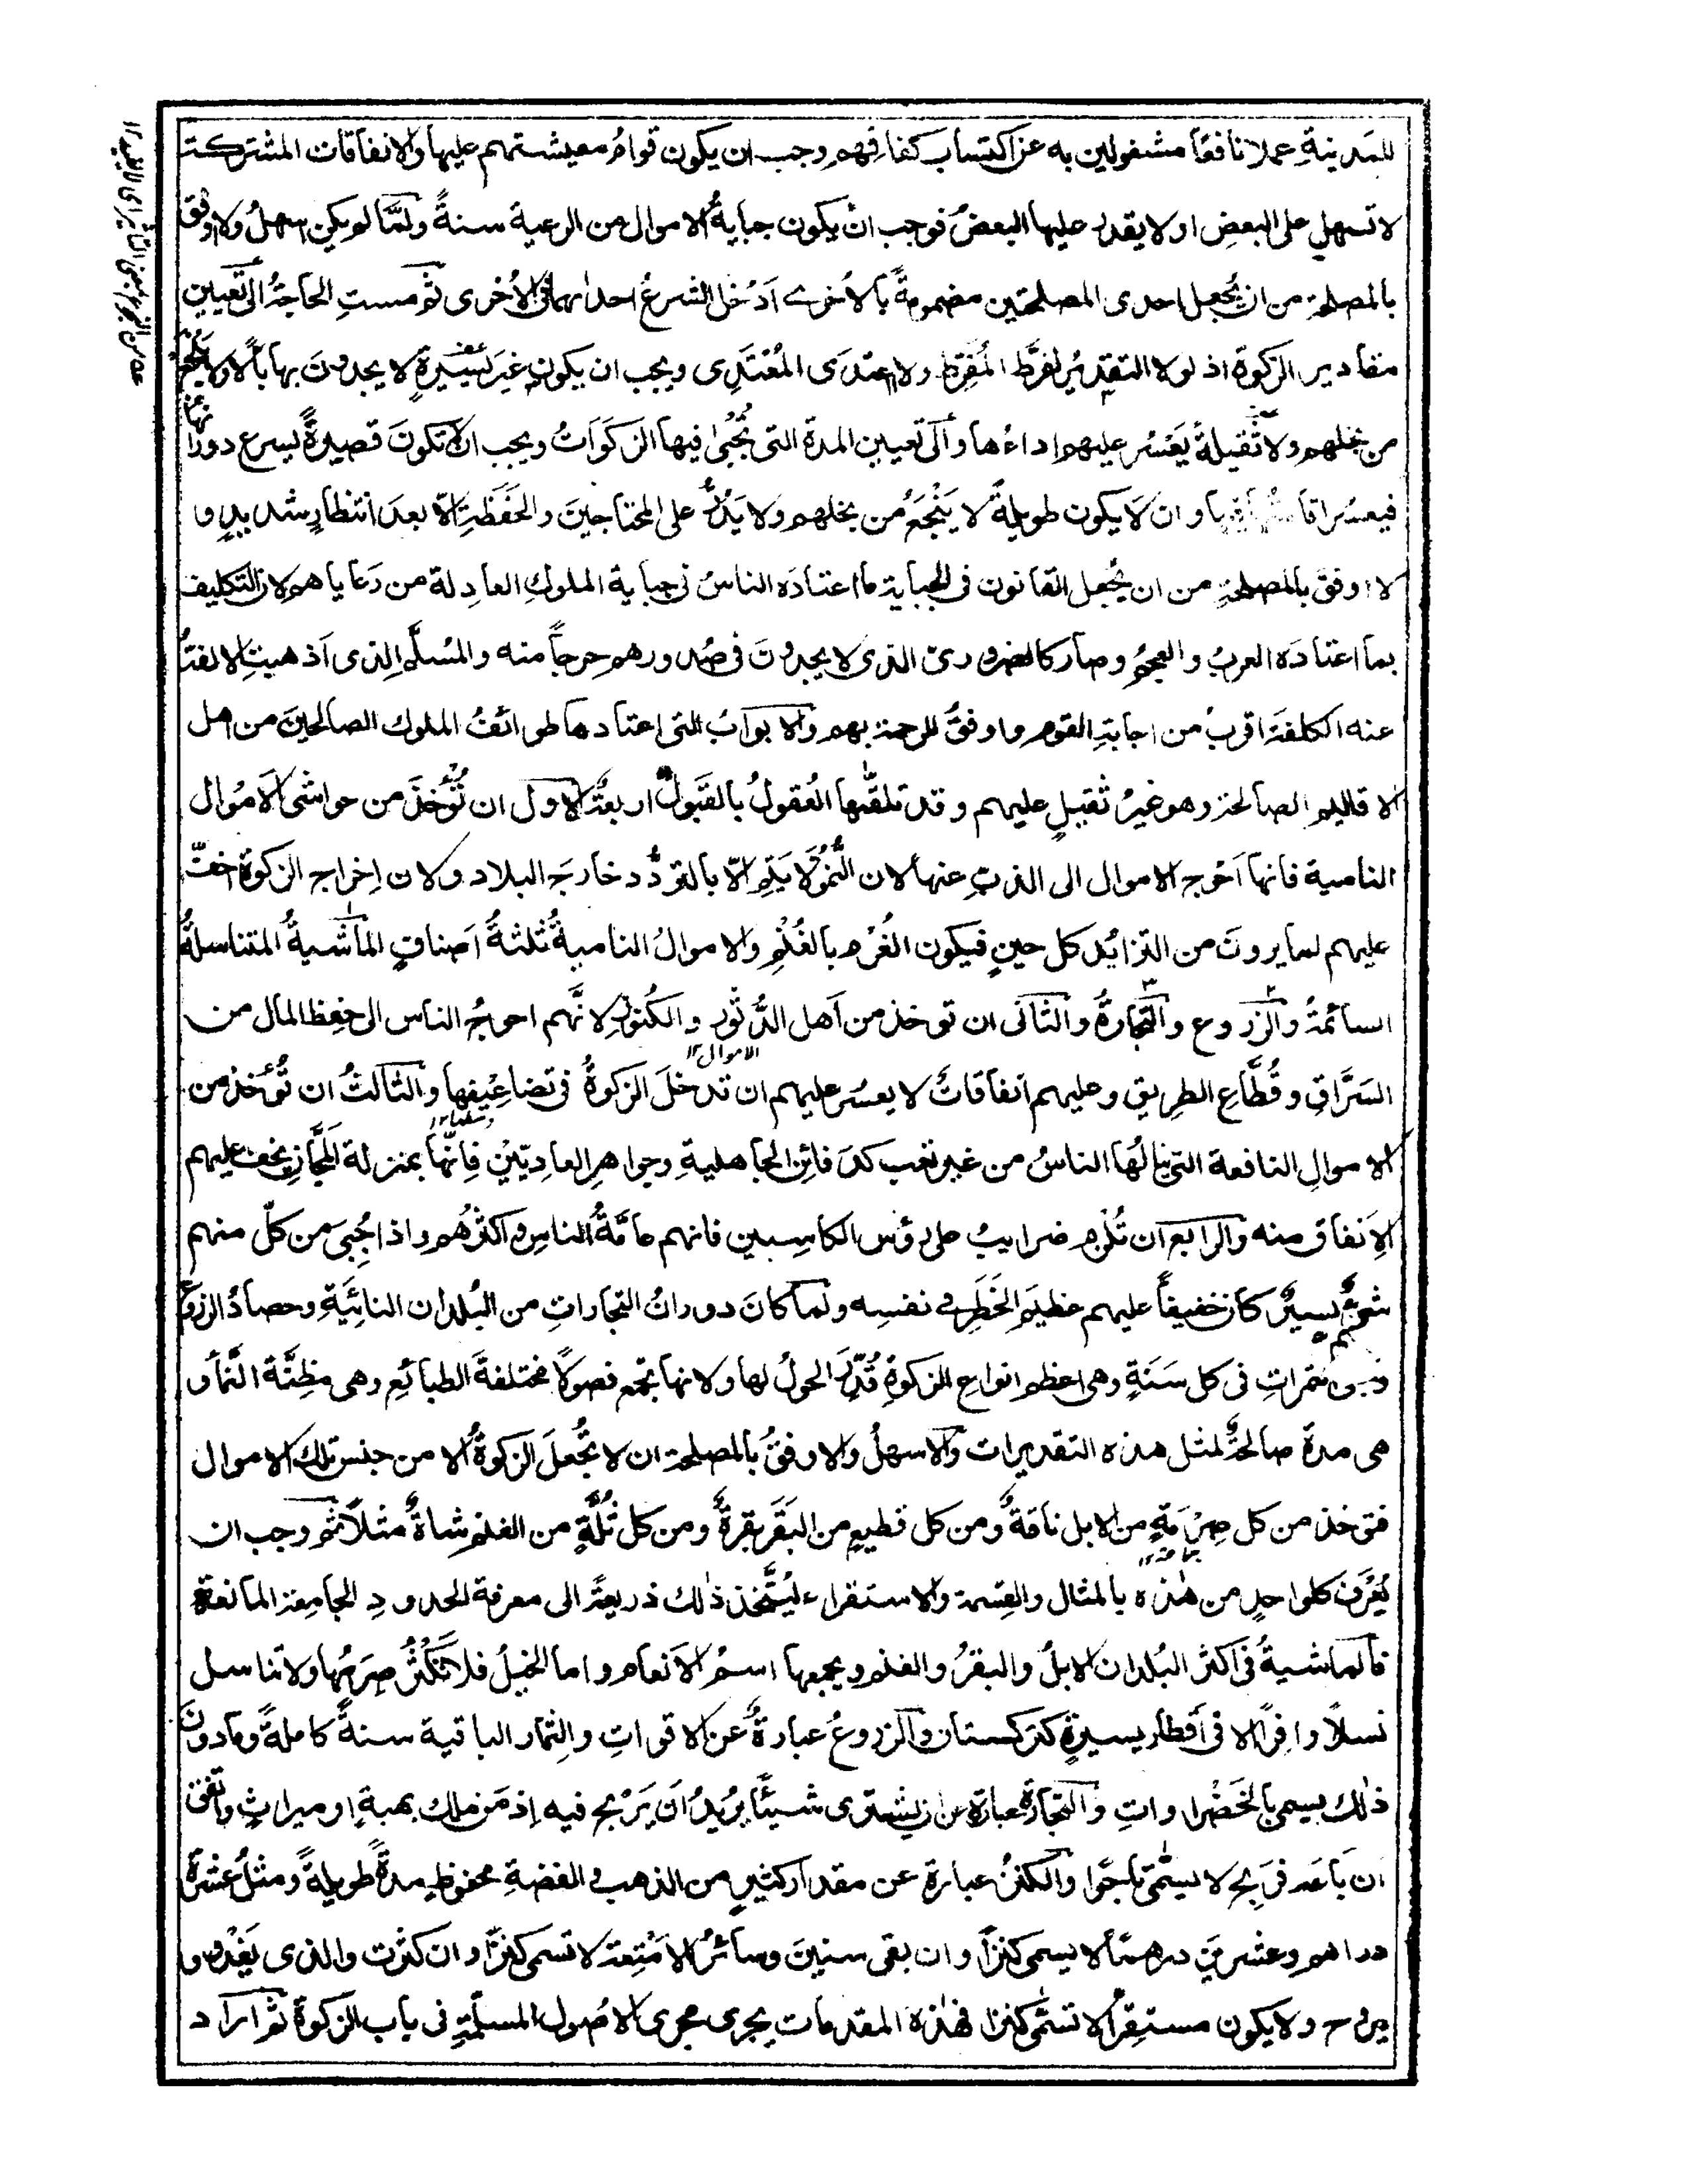 للمدينة عملا نافعا مشغولين به عن اكتساب كفافهم وجب ان يكون قوام معيشتهم عليها والانفاقات المشتركة
لا تسهل على البعض او لا يقدر عليها البعض فوجب ان يكون جباية الاموال من الرعية سنة ولما لم يكن اسهل ولا اوفق
بالمصلحة من ان يجعل احدى المصلحتين مضمومة بالاخرى ادخل الشرع احداهما فى الاخرى ثم مست الحاجة الى تعيين
مقادير الزكوة اذ لولا التقدير لفرط المفرط ولاعتدى المعتدى ويجب ان يكون غير يسيرة لا يجدون بها بالا ولا ينجع
من بخلهم ولا ثقيلة يعسر عليهم اداءها وآلى تعيين المدة التى تجبى فيها الزكوات ويجب ان لا تكون قصيرة يسرع دورانها
فيعسر اقامتها فيها وان لا يكون طويلة لا ينجع من بخلهم ولا يدر على المحتاجين والحفظة الا بعد انتظار شديد و
لا اوفق بالمصلحة من ان يجعل القانون فى الجباية ما اعتاده الناس فى جباية الملوك العادلة من رعاياهم لان التكليف
بما اعتاده العرب والعجم وصار كالضرورى الذى لا يجدون فى صدورهم حرجا منه والمسلم الذى اذهبت الالفة
عنه الكلفة اقرب من اجابة القوم واوفق للرحمة بهم والابواب التى اعتادها طوائف الملوك الصالحين من اهل
الاقاليم الصالحة وهو غير ثقيل عليهم وقد تلقتها العقول بالقبول اربعة الاول ان تؤخذ من حواشى الاموال
النامية فانها احوج الاموال الى الذب عنها لان النمو لا يتم الا بالتردد خارج البلاد ولان اخراج الزكوة اخف
عليهم لما يرون من التزايد كل حين فيكون الغرم بالغنم والاموال النامية ثلثة اصناف الماشية المتناسلة
السائمة والزروع والتجارة والثانى ان تؤخذ من اهل الدثور والكنوز لانهم احوج الناس الى حفظ المال من
السراق وقطاع الطريق وعليهم انفاقات لا يعسر عليهم ان تدخل الزكوة فى تضاعيفها والثالث ان تؤخذ من
الاموال النافعة التى ينالها الناس من غير تعب كدفائن الجاهلية وجواهر العاديين فانها بمنزلة المجان يخف عليهم
الانفاق منه والرابع ان تلزم ضرايب على رؤس الكاسبين فانهم عامة الناس واكثرهم واذا جبى من كل منهم
شئ يسير كان خفيفا عليهم عظيم الخطر فى نفسه ولما كان دوران التجارات من البلدان النائية وحصاد الزروع
وجنى الثمرات فى كل سنة وهى اعظم انواع الزكوة قدر الحول لها ولانها تجمع فصولا مختلفة الطبائع وهى مظنة النماء و
هى مدة صالحة لمثل هذه التقديرات والاسهل والاوفق بالمصلحة ان لا تجعل الزكوة الا من جنس تلك الاموال
فتؤخذ من كل صرمة من الابل ناقة ومن كل قطيع من البقر بقرة ومن كل ثلة من الغنم شاة مثلا ثم وجب ان
يعرف كل واحد من هذه بالمثال والقسمة والاستقراء ليتخذ ذلك ذريعة الى معرفة الحدود الجامعة المانعة
فالماشية فى اكثر البلدان الابل والبقر والغنم ويجمعها اسم الانعام واما الخيل فلا تكثر صرمها ولا تناسل
نسلا وافرا الا فى اقطار يسيرة كتركستان والزروع عبارة عن الاقوات والثمار الباقية سنة كاملة وما دون
ذلك يسمى بالخضراوات والتجارة عبارة عن ان يشترى شيئا يريد ان يربح فيه اذ من ملك بهبة او ميراث واتفق
ان باعه فربح لا يسمى تاجرا والكنز عبارة عن مقدار كثير من الذهب والفضة محفوظ مدة طويلة ومثل عشرة
دراهم وعشرين درهما لا يسمى كنزا وان بقى سنين وسائر الامتعة لا تسمى كنزا وان كثرت والذى يغدو و
يروح ولا يكون مستقرا لا تسمى كنزا فهذه المقدمات يجرى مجرى الاصول المسلمة فى باب الزكوة ثم اراد
الاموال ١٢